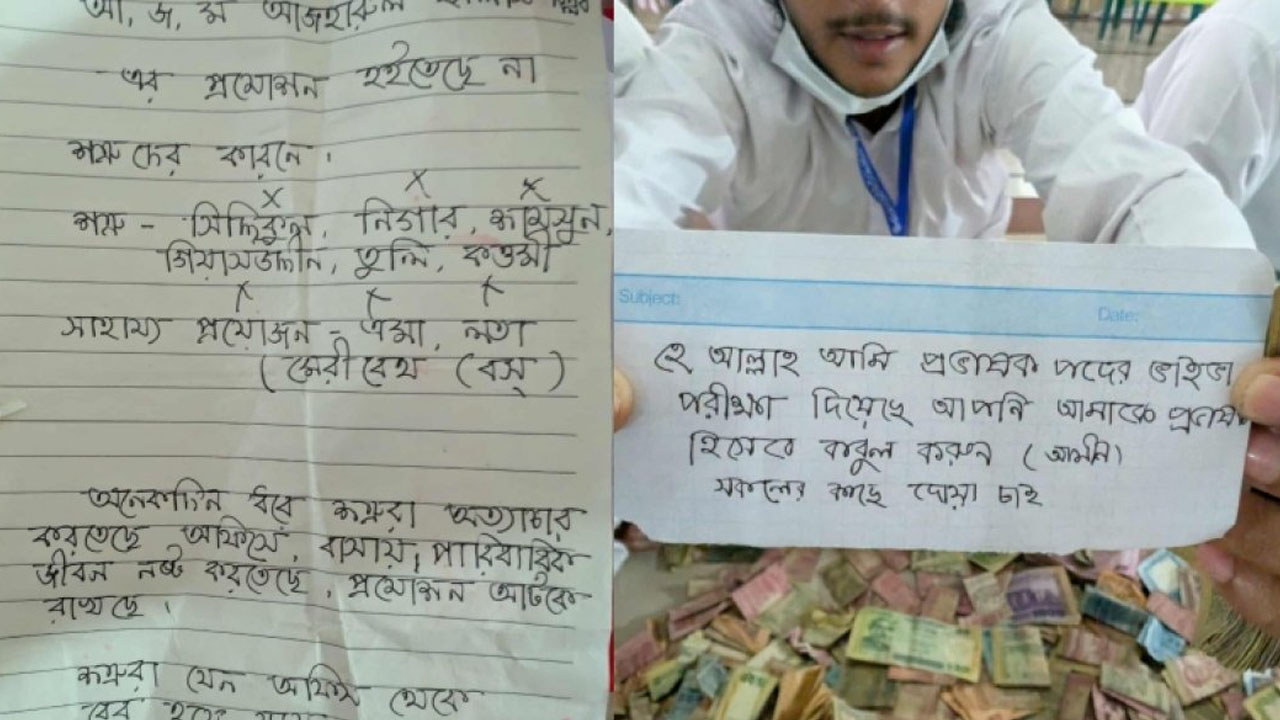 আ, জ, ম আজহারুল
এর প্রমোশন হইতেছে না
শত্রুদের কারনে।
শত্রু - সিদ্দিকুল, নিগার,
গিয়াসউদ্দীন, তুলি,
সাহায্য প্রয়োজন - এশা, লতা
(মেরীবেথ (বস্)
অনেকদিন ধরে শত্রুরা অত্যাচার
করতেছে অফিসে, বাসায়, পারিবারিক
জীবন নষ্ট করতেছে, প্রমোশন আটকে
রাখছে।
শত্রুরা যেন অফিস থেকে
বের হয়ে
Subject:
Date:
হে আল্লাহ আমি প্রভাষক পদের ভাইভা
পরীক্ষা দিয়েছে আপনি আমাকে প্রভাষক
হিসেবে কবুল করুন (আমীন)
সকলের কাছে দোয়া চাই